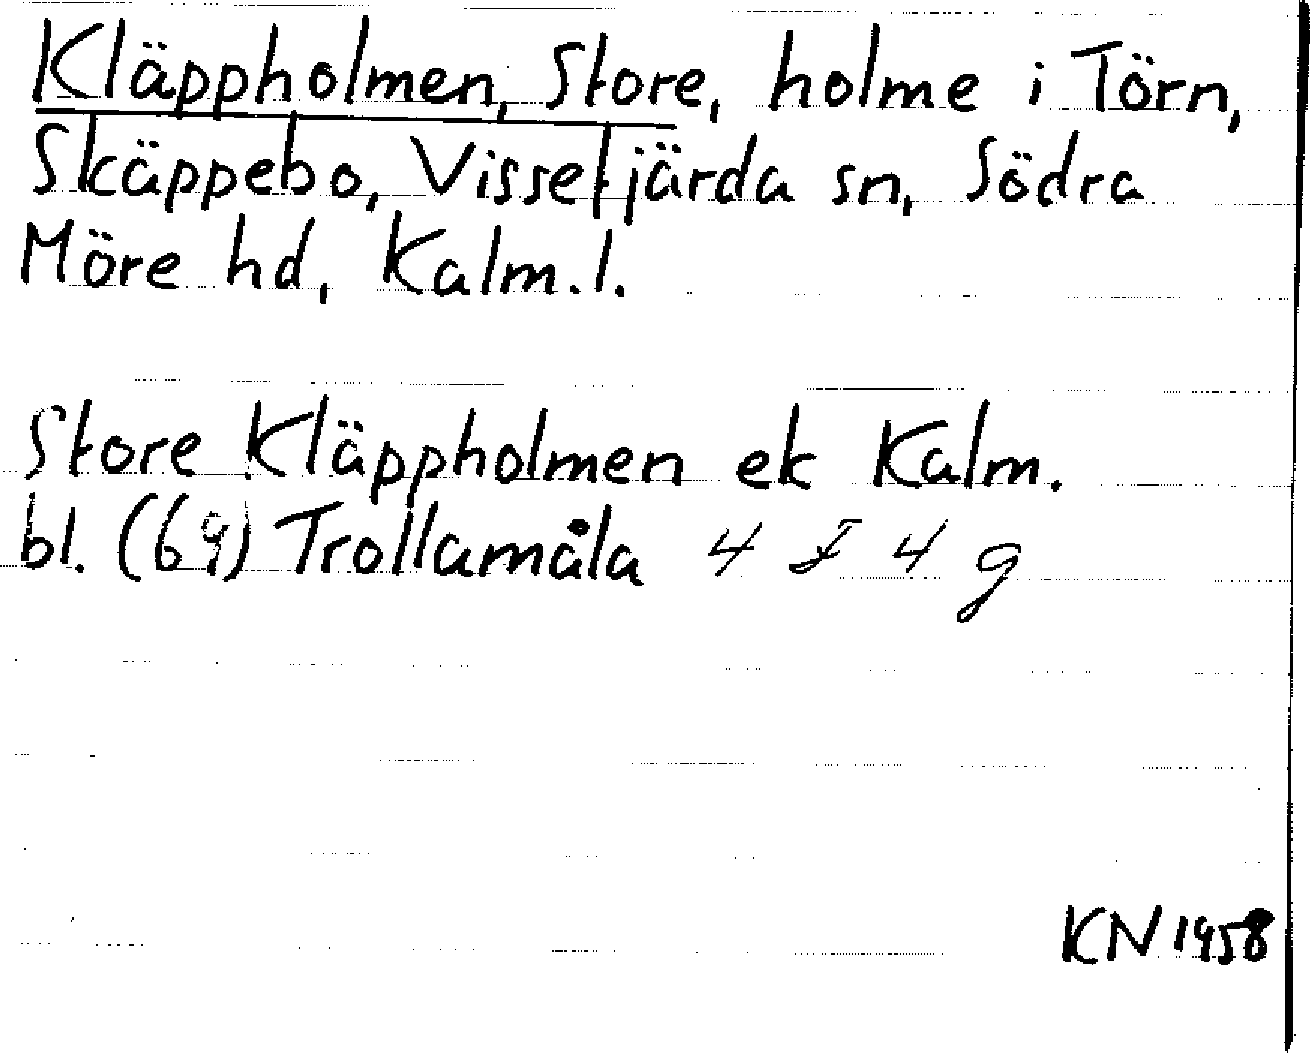 Kläppholmen, Store, holme i Törn,
Skäppebo, Vissefjärda sn, Södra
Möre hd, Kalm.l.
Store Kläppholmen ek Kalm.
bl. (69) Trollamåla 4 I 4 g
KN 1958